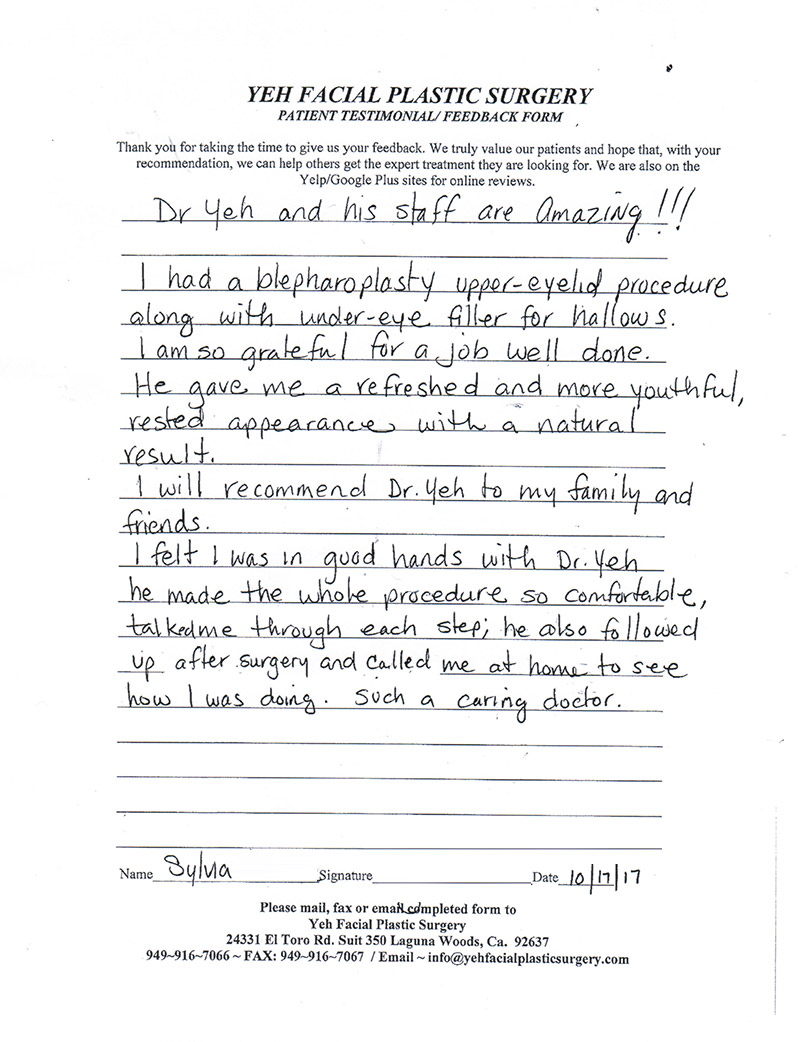 YEH FACIAL PLASTIC SURGERY
PATIENT TESTIMONIAL/ FEEDBACK FORM
Thank you for taking the time to give us your feedback. We truly value our patients and hope that, with your
recommendation, we can help others get the expert treatment they are looking for. We are also on the
Yelp/Google Plus sites for online reviews.
Dr Yeh and his staff are Amazing!!!
I had a blepharoplasty upper-eyelid procedure
along with under-eye filler for hallows.
I am so grateful for a job well done.
He gave me a refreshed and more youthful,
rested appearance with a natural
result.
I will recommend Dr. Yeh to my family and
friends.
I felt I was in good hands with Dr. Yeh
he made the whole procedure so comfortable,
talked me through each step; he also followed
up after surgery and called me at home to see
how I was doing. Such a caring doctor.
Name Sylvia Signature Date 10/17/17
Please mail, fax or email completed form to
Yeh Facial Plastic Surgery
24331 El Toro Rd. Suit 350 Laguna Woods, Ca. 92637
949~916~7066 ~ FAX: 949~916~7067 / Email ~ info@yehfacialplasticsurgery.com